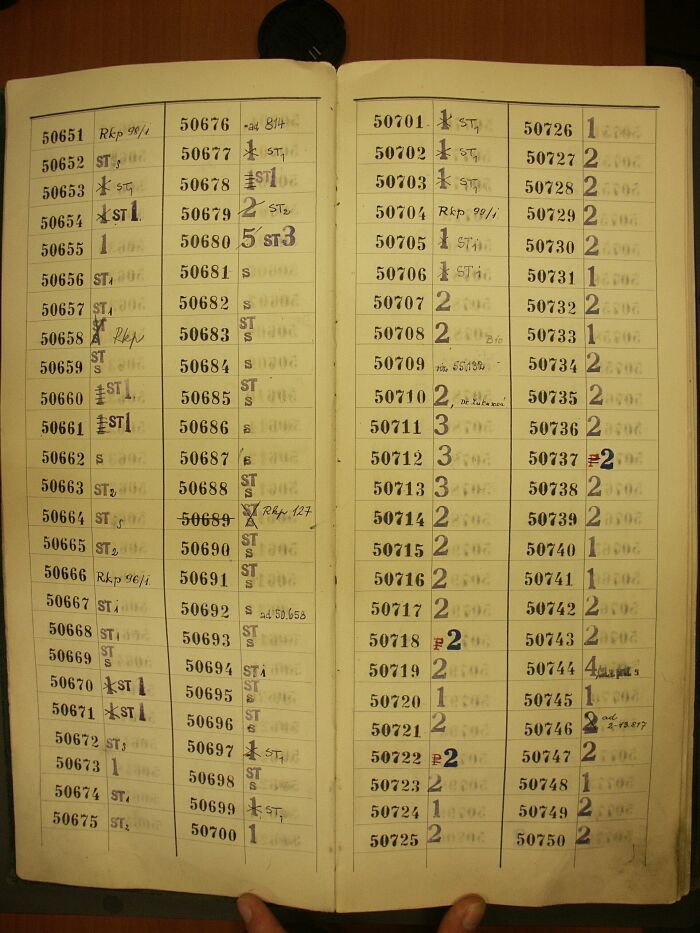 50651 Rkp 90/i
50652 ST s
50653 1 ST1
50654 1 ST 1
50655 1
50656 ST1
50657 ST1
50658 ST s Rkp
50659 ST s
50660 ST 1
50661 ST 1
50662 s
50663 ST2
50664 ST s
50665 ST2
50666 Rkp 96/i
50667 ST i
50668 ST i
50669 ST s
50670 1 ST 1
50671 1 ST 1
50672 ST3
50673 1
50674 ST1
50675 ST2
50676 ad 814
50677 1 ST1
50678 ST 1
50679 2 ST2
50680 5 ST 3
50681 s
50682 s
50683 ST s
50684 s
50685 ST s
50686 s
50687 s
50688 ST s
50689 ST Rkp 127
50690 ST s
50691 ST s
50692 s ad 50.658
50693 ST s
50694 ST 1
50695 ST s
50696 ST s
50697 1 ST1
50698 ST s
50699 1 ST1
50700 1
50701 1 ST1
50702 1 ST1
50703 1 ST1
50704 Rkp 90/i
50705 1 ST i
50706 1 ST i
50707 2
50708 2 Bio
50709
50710 2
50711 3
50712 3
50713 3
50714 2
50715 2
50716 2
50717 2
50718 P 2
50719 2
50720 1
50721 2
50722 P 2
50723 2
50724 1
50725 2
50726 1
50727 2
50728 2
50729 2
50730 2
50731 1
50732 2
50733 1
50734 2
50735 2
50736 2
50737 P 2
50738 2
50739 2
50740 1
50741 1
50742 2
50743 2
50744 4
50745 1
50746 2 ad 2-13.817
50747 2
50748 1
50749 2
50750 2